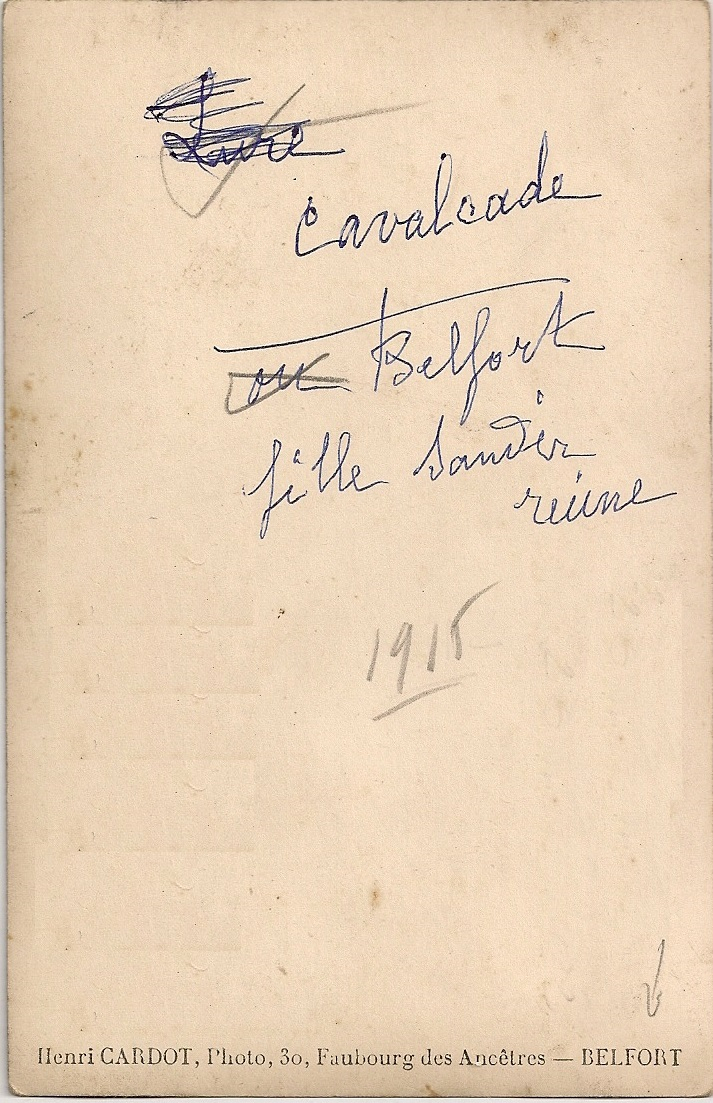 Lure
Cavalcade
ou Belfort
fille Sander
reine
1915
Henri CARDOT, Photo, 30, Faubourg des Ancêtres — BELFORT